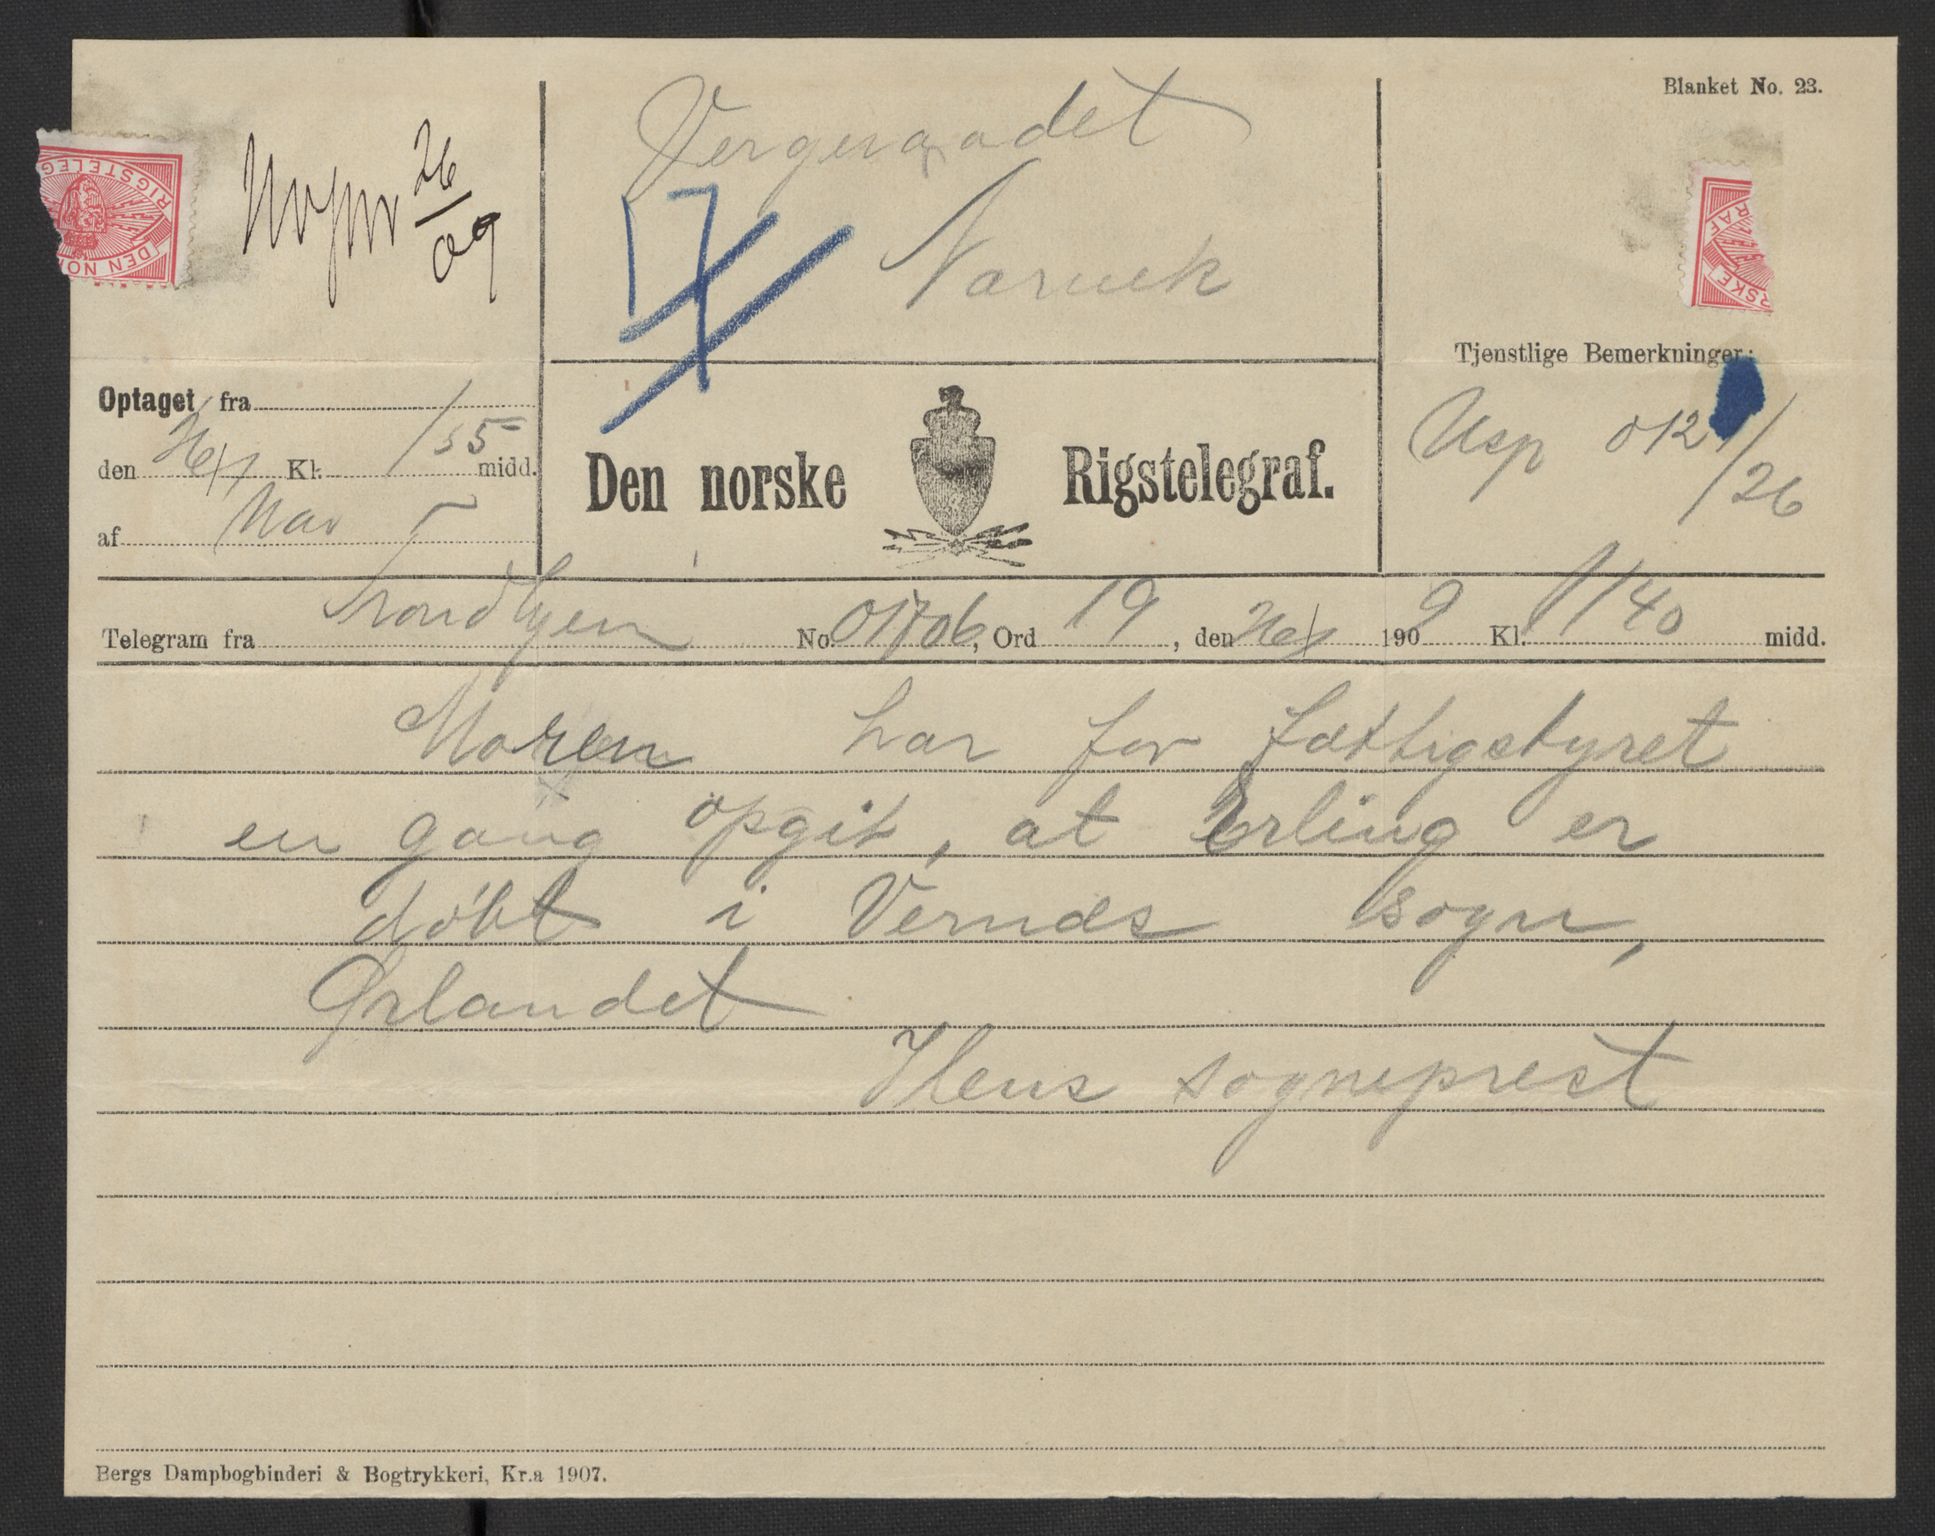 Blanket No. 23.
26
09
Vergeraadet
Narvik
17
Tjenstlige Bemerkninger:
Optaget fra
den 26/1 Kl. 1 55 midd.
af Nav
Den norske Rigstelegraf.
012
/26
Telegram fra Trondhjem No. 01706, Ord 19, den 26/1 1909 Kl. 1140 midd.
Moren har for fattigstyret
en gang opgit, at Erling er
døbt i Vernæs sogn,
Ørlandet
Ilens sogneprest
Bergs Dampbogbinderi & Bogtrykkeri, Kr.a 1907.